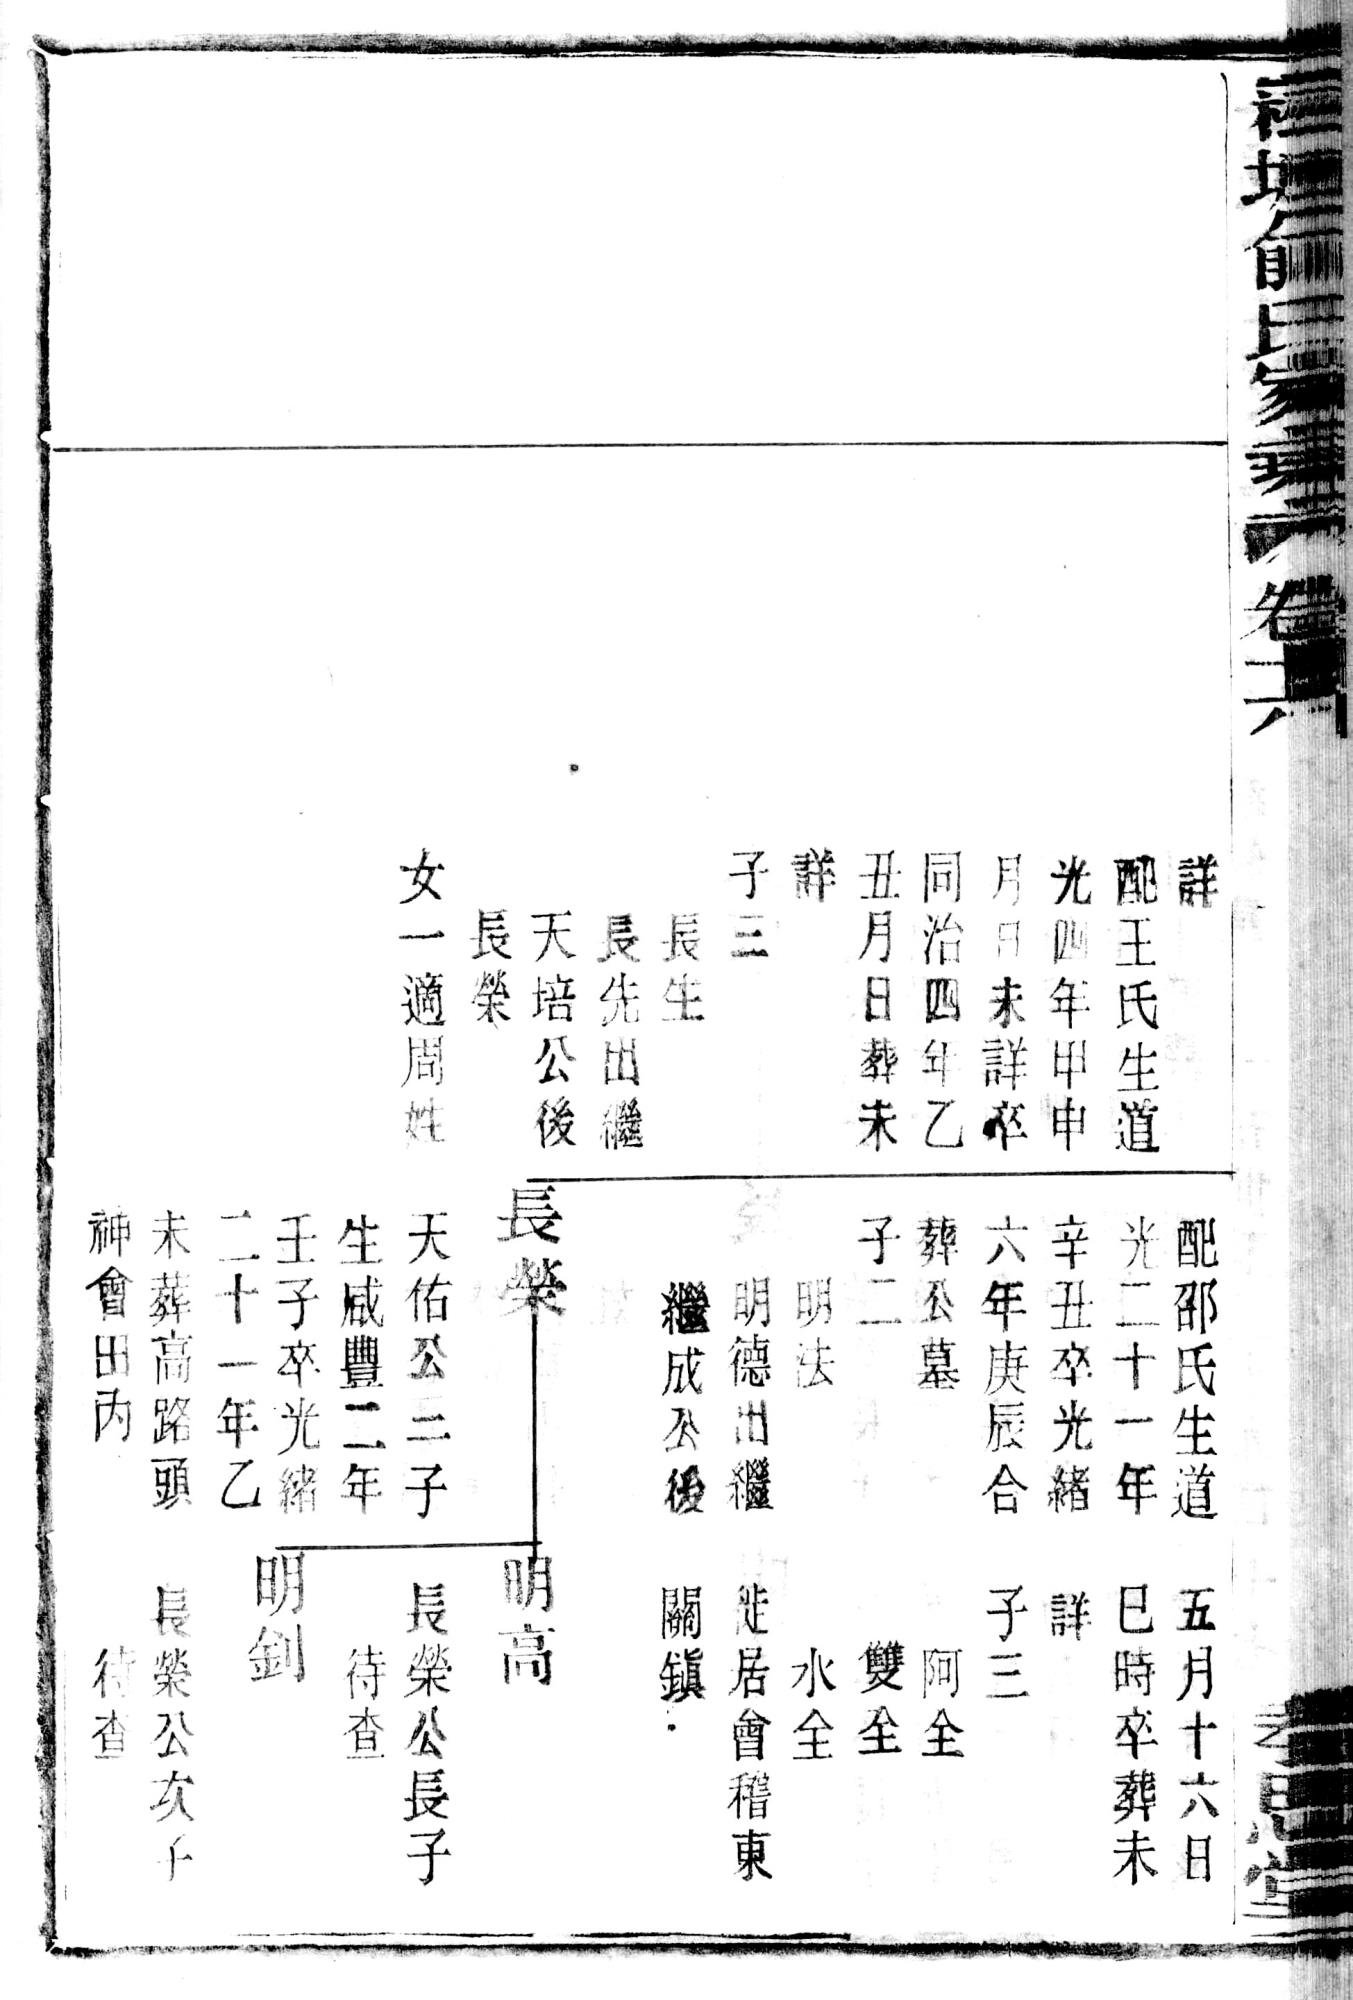 卷六
詳
配王氏生道
光四年甲申
月日未詳卒
同治四年乙
丑月日葬未
詳
子三
長生
長先出繼
天培公後
長榮
女一適周姓
配邵氏生道
光二十一年
辛丑卒光緒
六年庚辰合
葬公墓
子二
明法
明德出繼
繼成公後
長榮
天佑公三子
生咸豐二年
壬子卒光緒
二十一年乙
未葬高路頭
神會田內
五月十六日
巳時卒葬未
詳
子三
阿全
雙全
水全
徙居會稽東
關鎮
明高
長榮公長子
待查
明釗
長榮公次子
待查